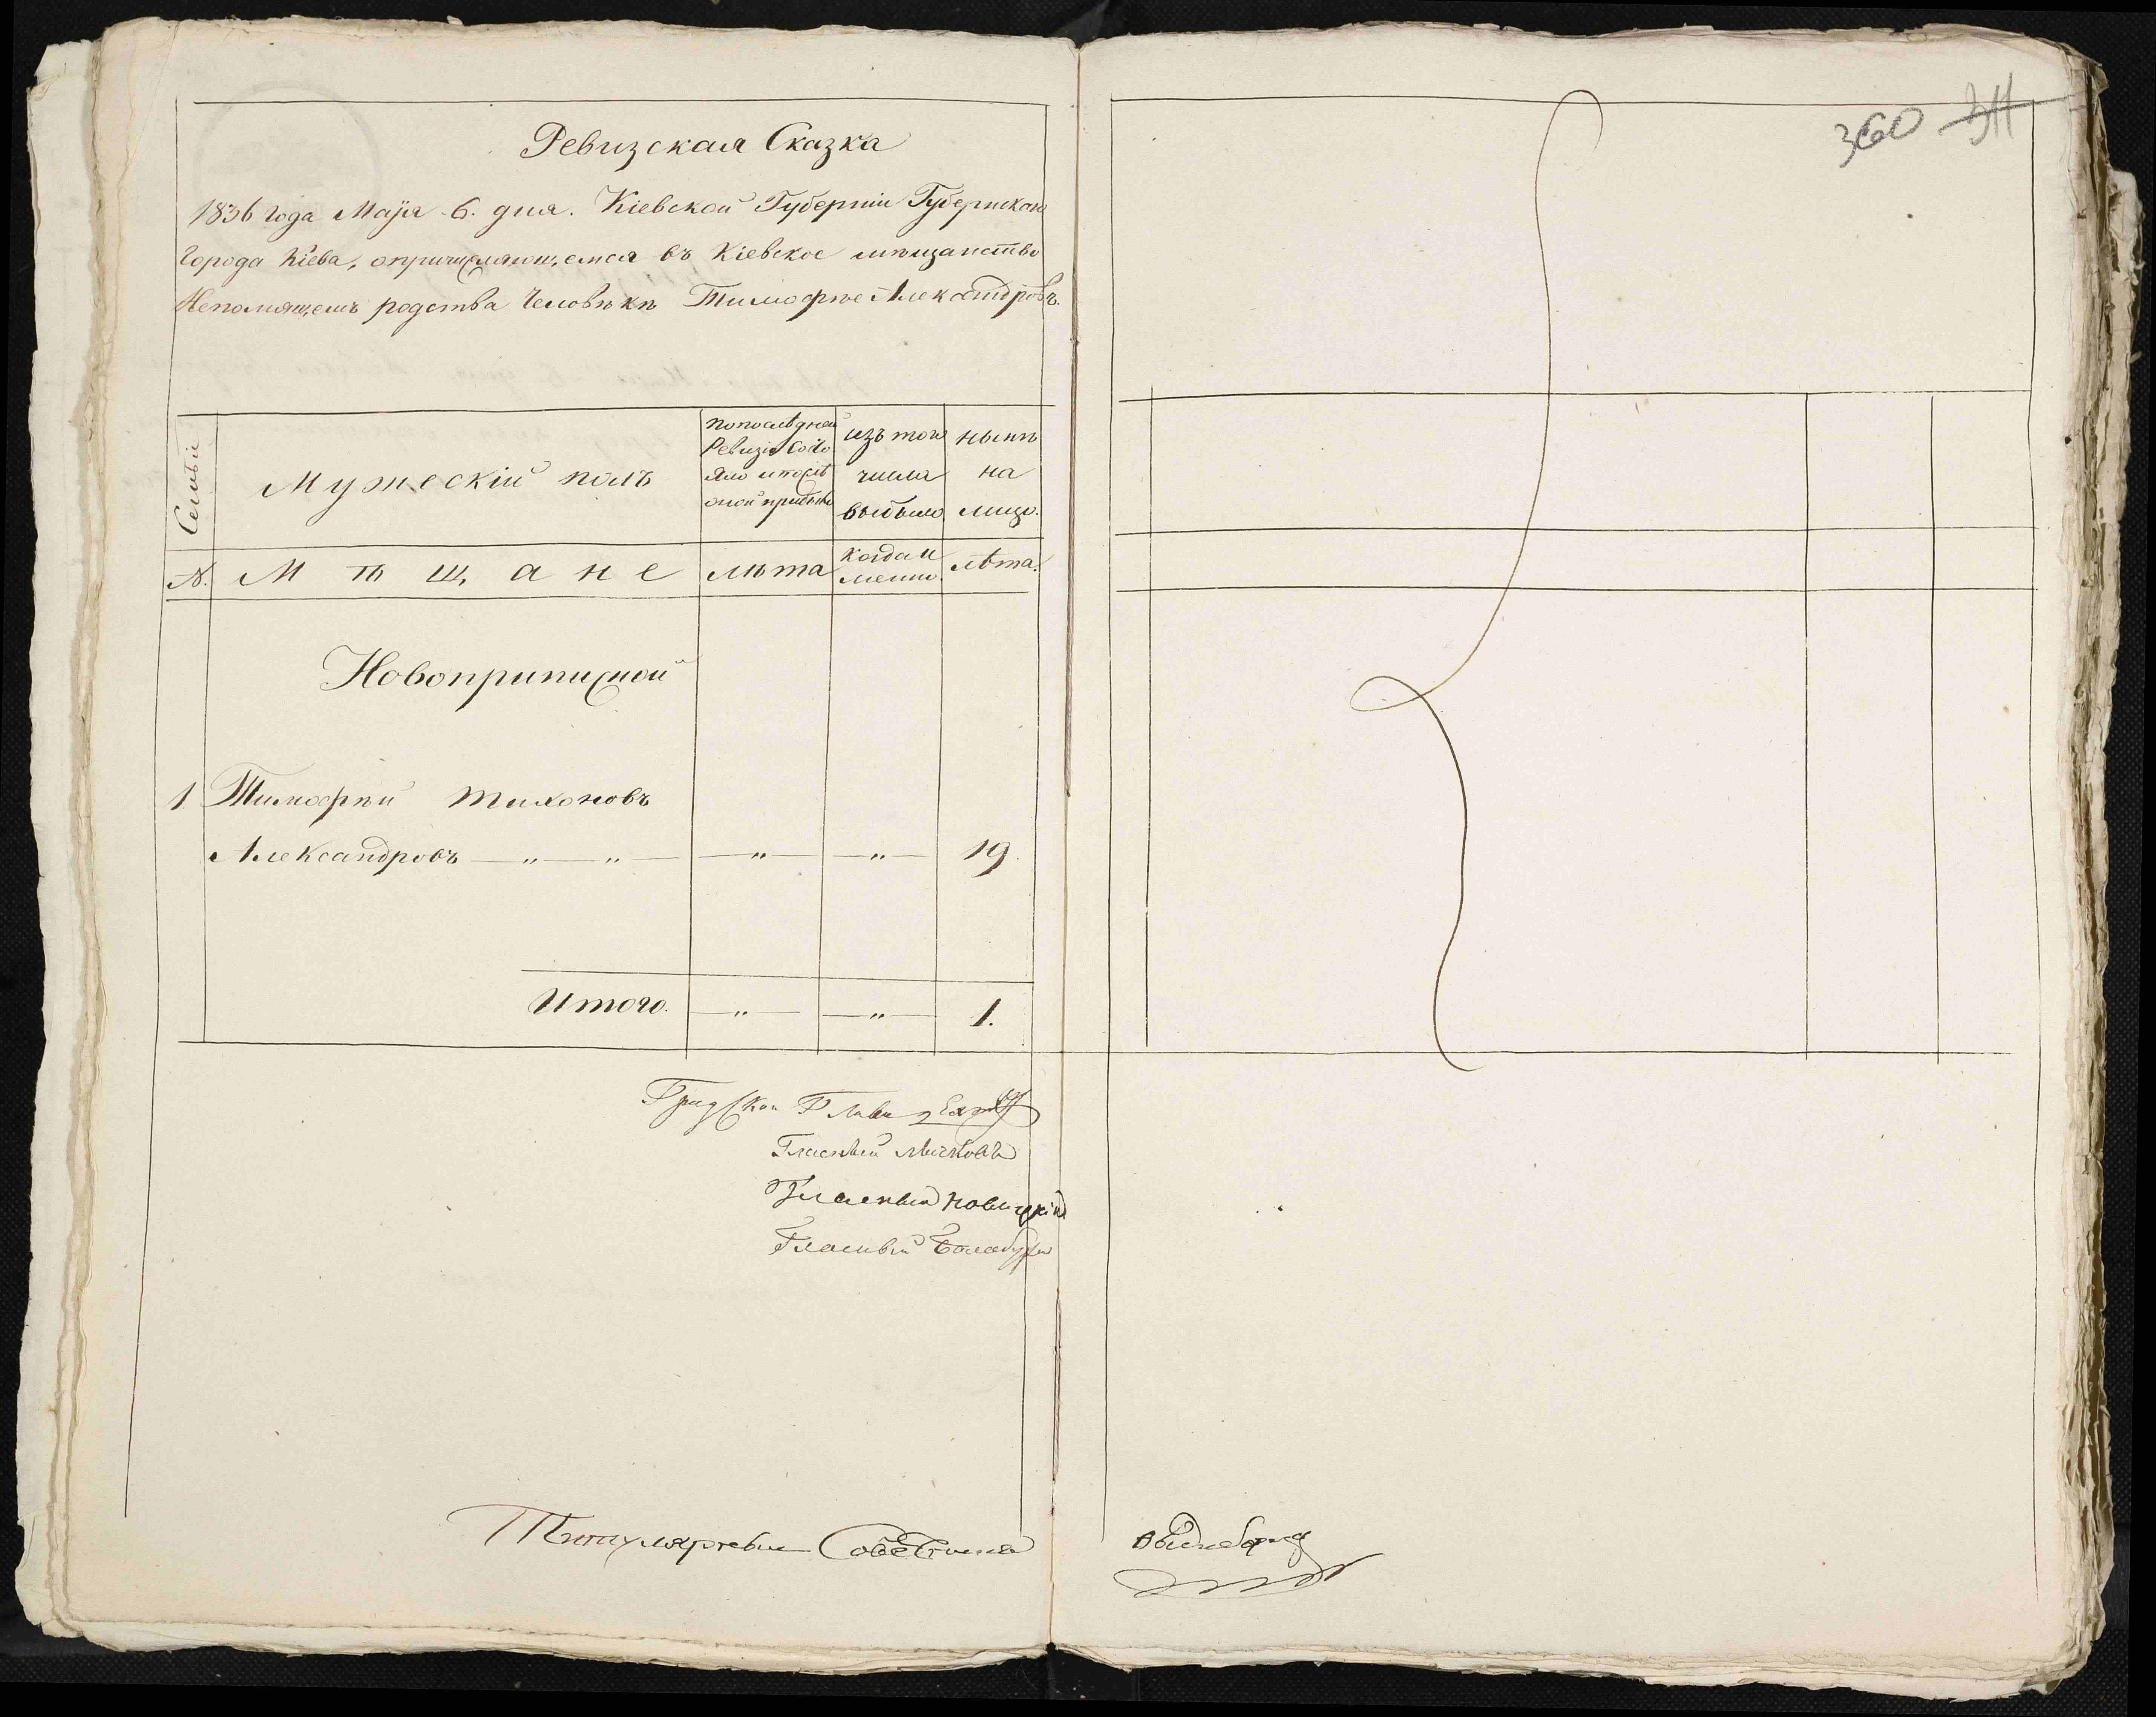 Ревизская Сказка
1836 года Маїя 6. дня. Кіевской Губерніи Губернскаго
Города Кіева, опричисляющемся въ Кіевское мѣщанство
Непомнящемъ родства Человѣкѣ Тимофѣе Александровѣ.
Семьи
Мужескій полъ
по послѣдней Ревизіи состояло и послѣ оной прибыло
изъ того числа выбыло
нынѣ на лицо.
№. Мѣщане лѣта когда именно. лѣта.
Новоприписной
1. Тимофѣй Тихоновъ
Александровъ — „ — „ — — „ — — „ — 19.
Итого. — „ — — „ — 1.
Градской Глава
Гласный
Гласный Новицкій
Гласный Балабуха
Титулярный Советникъ
360 311